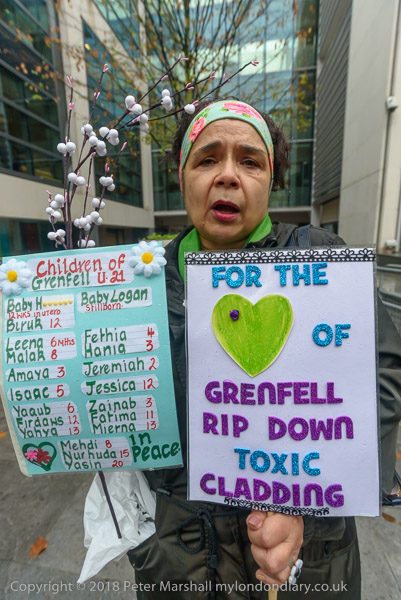 Children of
Grenfell U 21
Baby H
12 WKS in UTERO
Baby Logan
Stillborn
Biruk 12
Leena 6 Mths
Malak 8
Fethia 4
Hania 3
Amaya 3
Jeremiah 2
Isaac 5
Jessica 12
Yaqub 6
Firdaws 12
Yahya 13
Zainab 3
Fatima 11
Mierna 13
Mehdi 8
Nurhuda 15
Yasin 20
in
Peace
FOR THE
OF
GRENFELL
RIP DOWN
TOXIC
CLADDING
Copyright © 2018 Peter Marshall mylondondiary.co.uk